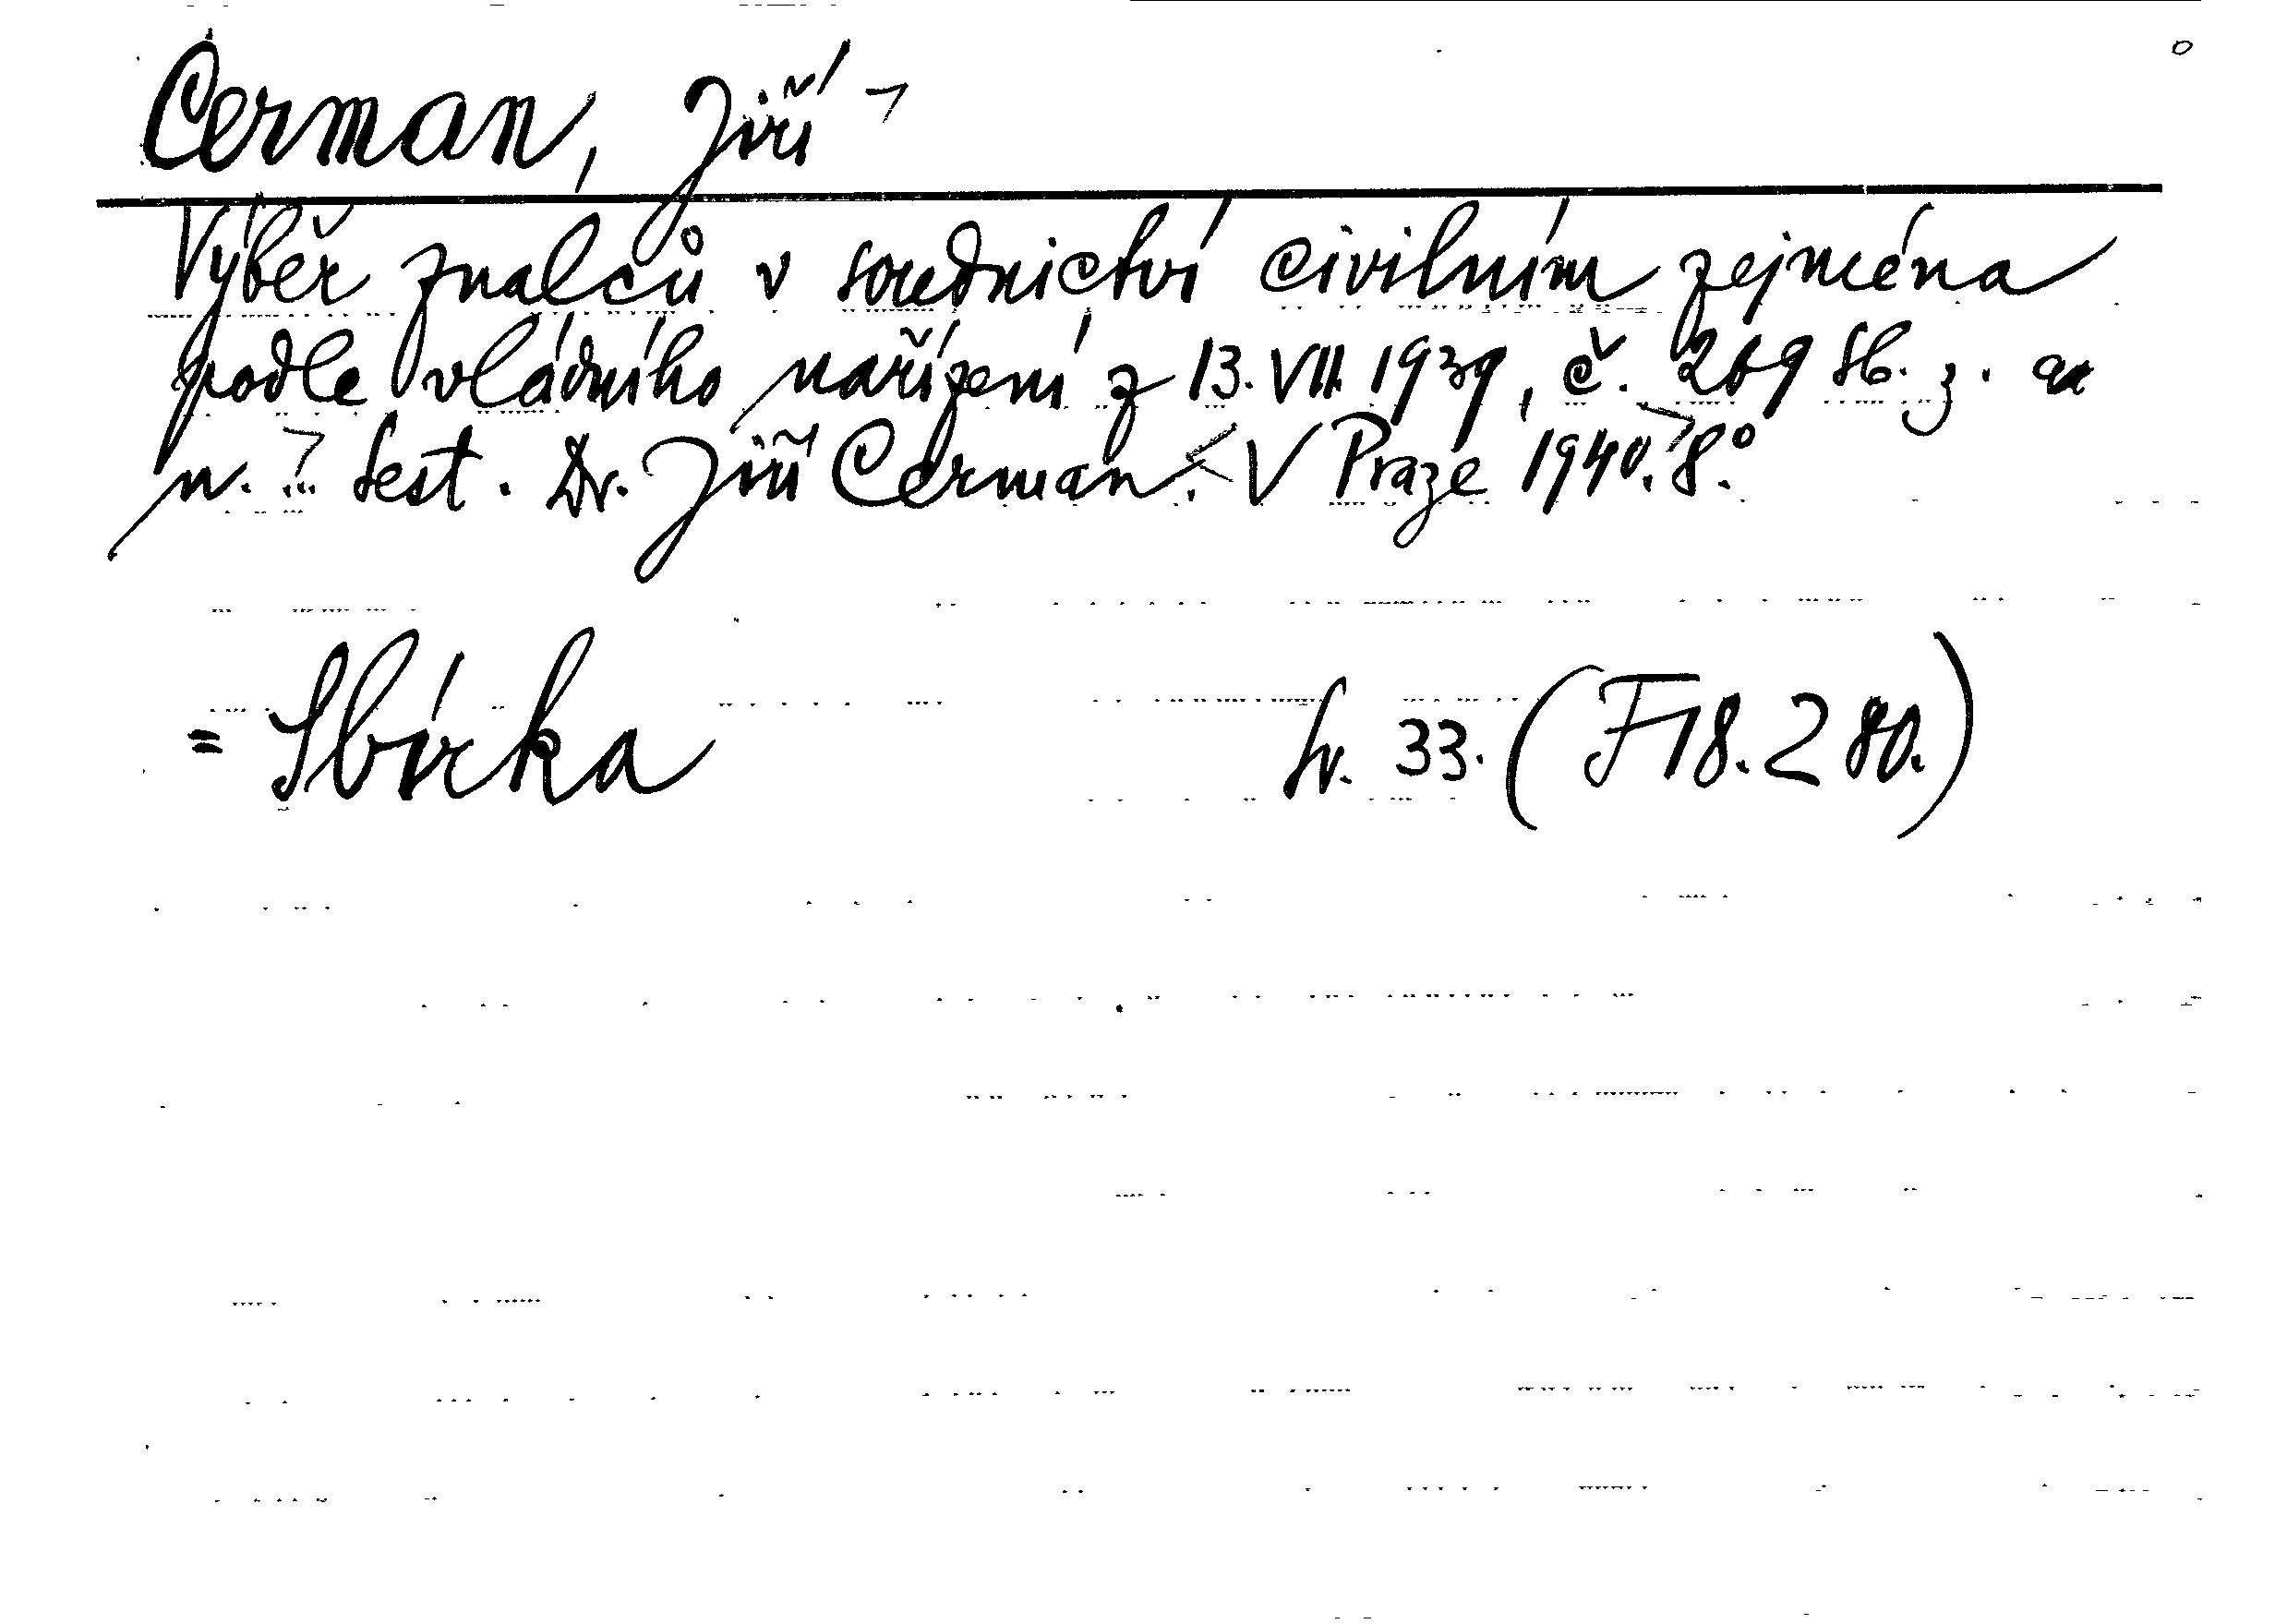 Cerman, Jiří
Výběr znalců v soudnictví civilním zejména
podle vládního nařízení z 13. VII. 1939, č. 269 Sb. z. a
n. ... Sest. Dr. Jiří Cerman. V Praze 1940. 8°.
= Sbírka Sv. 33. (F 18.280.)